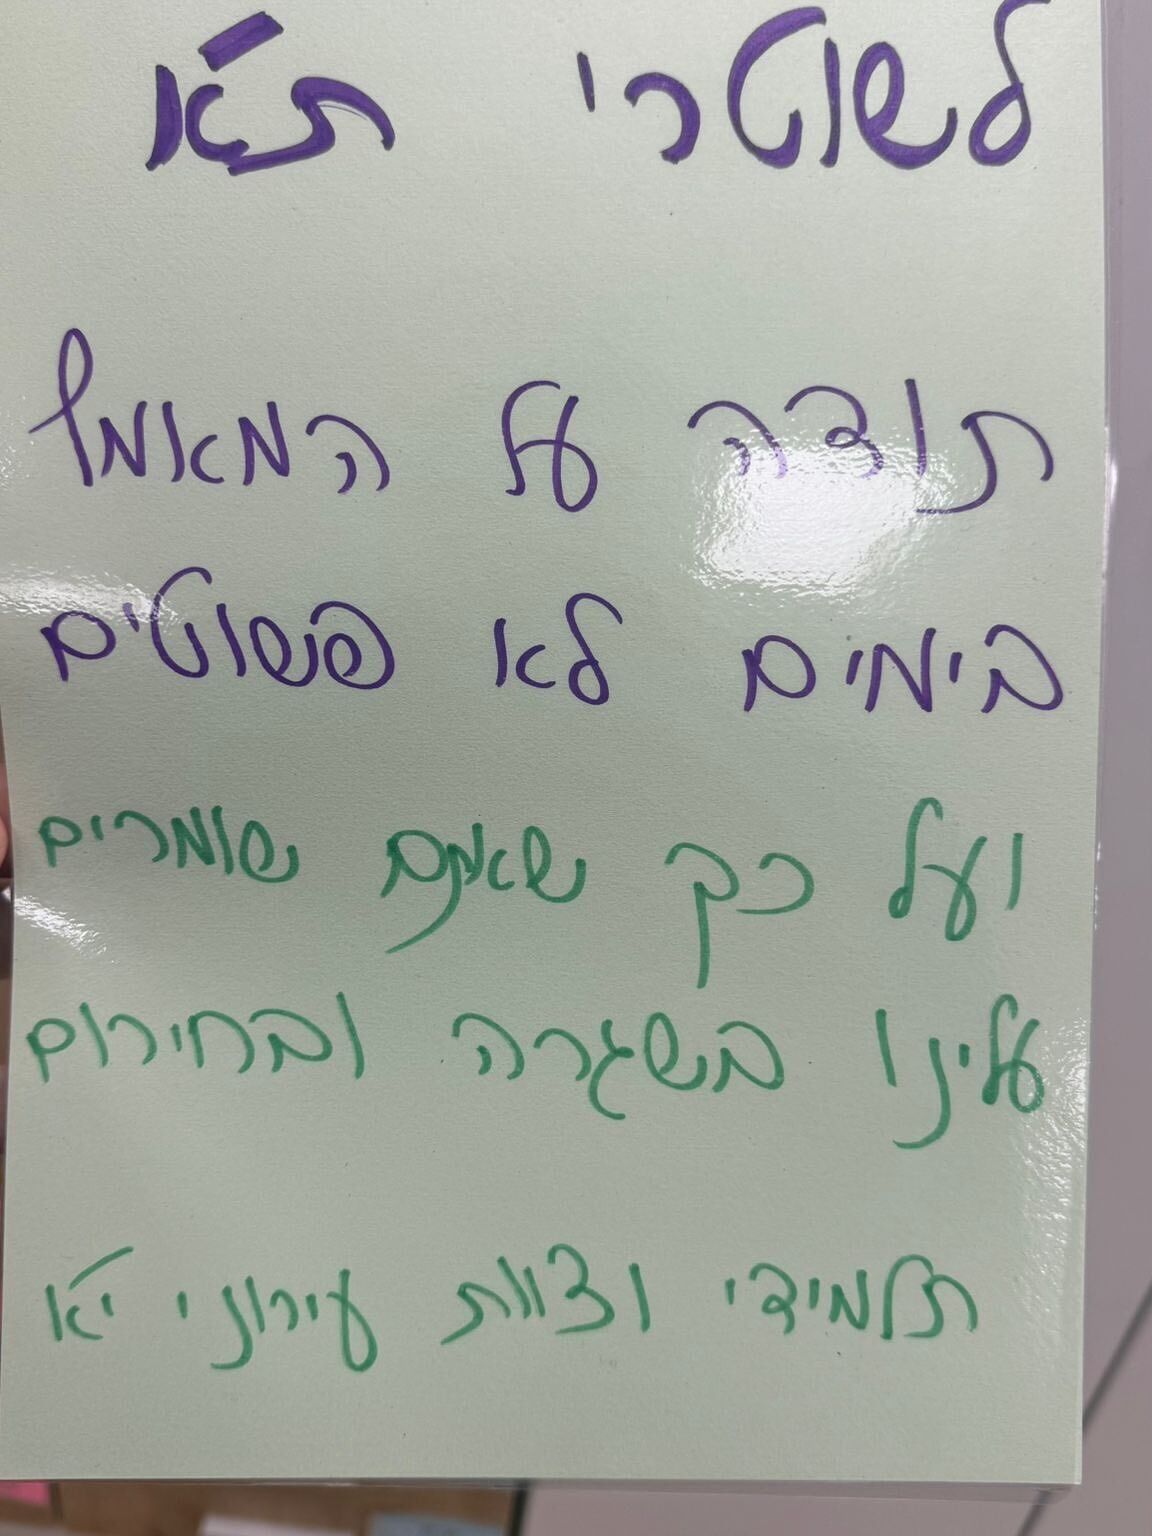 לשוטרי ת"א
תודה על המאמץ
בימים לא פשוטים
ועל כך שאתם שומרים
עלינו בשגרה ובחירום
תלמידי וצוות עירוני י"א